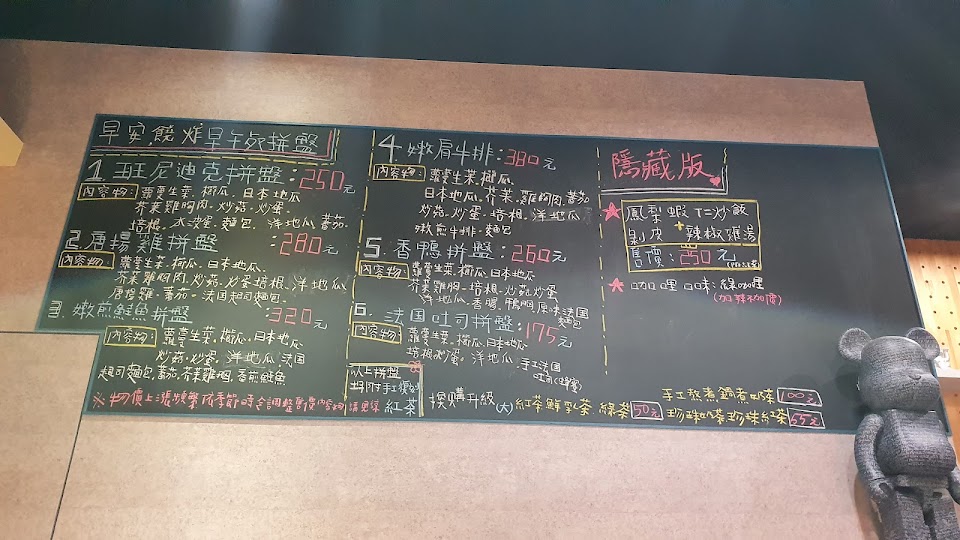 早安饒炸早午點拼盤
1.班尼迪克拼盤:250元
內容物:蘿蔓生菜.櫛瓜.日本地瓜
芥菜雞胸肉.炒菇.炒蛋.
培根.水波蛋.麵包.洋地瓜.蕃茄
2.唐揚雞拼盤:280元
內容物:蘿蔓生菜.櫛瓜.日本地瓜.
芥菜雞胸肉.炒菇.炒蛋培根.洋地瓜
唐揚雞.蕃茄.法國起司麵包.
3.嫩煎鮭魚拼盤320元
內容物:蘿蔓生菜.櫛瓜.日本地瓜
炒菇.炒蛋.洋地瓜.法國
起司麵包蕃茄.芥菜雞胸.香煎鮭魚
※物價上漲頻繁
4.嫩肩牛排:380元
內容物:蘿蔓生菜.櫛瓜.
日本地瓜.芥菜.雞胸肉.蕃茄
炒菇.炒蛋.培根.洋地瓜
嫩煎牛排.麵包
5.香鴨拼盤:260元
內容物:蘿蔓生菜.櫛瓜.日本地瓜
芥菜雞胸.培根.炒菇炒蛋
洋地瓜.香腸.鴨胸.原味法國
麵包
6.法國吐司拼盤:175元
內容物:蘿蔓生菜.櫛瓜.日本地瓜
培根炒蛋.洋地瓜.手工法國
吐司
以上拼盤
均附手工
紅茶
換購升級(大)紅茶鮮乳茶.綠茶50元
隱藏版
鳳梨蝦仁炒飯
+
剝皮辣椒雞湯
售價:250元
咖哩口味:綠咖哩
手工熬煮鍋煮奶茶100元
珍珠奶茶珍珠紅茶55元